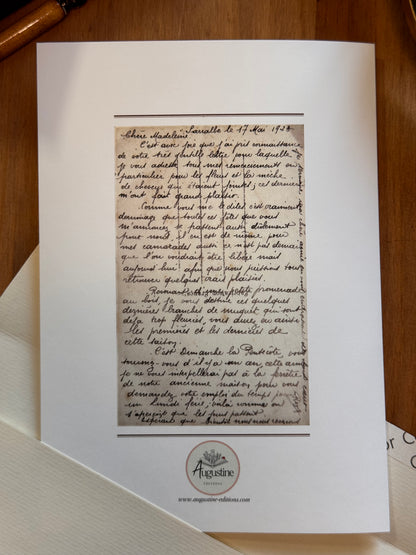 Sarralbe le 17 Mai 192
Chère Madeleine
C'est avec joie que j'ai pris connaissance
de votre très gentille lettre pour laquelle
je vous adresse tous mes remerciements en
particulier pour les fleurs et la mèche
de cheveux qui étaient jointes; ces derniers
m'ont fait grand plaisir.
Comme vous me le dites c'est vraiment
dommage que toutes ces fêtes que vous
m'annoncez se passent aussi
pour nous, il en est de même pour
mes camarades aussi ce n'est pas demain
que l'on voudrait être libéré mais
aujourd'hui afin que nous puissions
retrouver quelques vrais plaisirs.
petite promenade
au bois, je vous destine ces quelques
dernières branches de muguet qui sont
déjà trop fleuries, vous aurez eu ainsi
les premières et les dernières de
cette saison.
C'est Dimanche la Pentecôte, vous
souvenez-vous d'il y a un an, cette année
je ne vous interpellerai pas à la fenêtre
de votre ancienne maison pour vous
demander votre emploi du temps pour
un Lundi férié, voilà comme on
s'aperçoit que les jours passent.
Espérons que bientôt nous nous reverrons
Augustine
EDITIONS
www.augustine-editions.com
or C